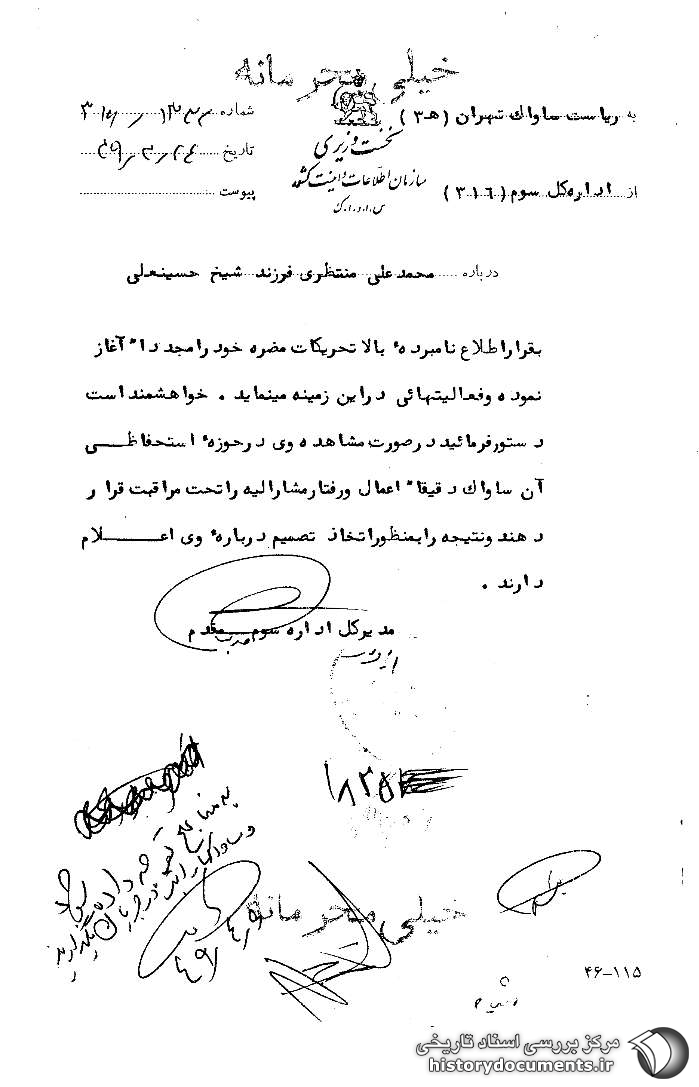 خیلی محرمانه
به ریاست ساواک تهران (ه‍ـ ۳)
نخست وزیری
سازمان اطلاعات و امنیت کشور
س.ا.و.ا.ک
شماره
از اداره کل سوم (۳۱۶)
تاریخ
پیوست
درباره محمد علی منتظری فرزند شیخ حسینعلی
بقرار اطلاع نامبردهٔ بالا تحریکات مضره خود را مجدداً آغاز
نموده و فعالیتهائی در این زمینه مینماید . خواهشمند است
دستور فرمائید در صورت مشاهده وی در حوزهٔ استحفاظی
آن ساواک دقیقاً اعمال و رفتار مشارالیه را تحت مراقبت قرار
دهند و نتیجه را بمنظور اتخاذ تصمیم دربارهٔ وی اعلام
دارند .
مدیر کل اداره سوم مقدم
به منابع
داده
۴۹/۴/۹
خیلی محرمانه
۴۶-۱۱۵
مرکز بررسی اسناد تاریخی
historydocuments.ir